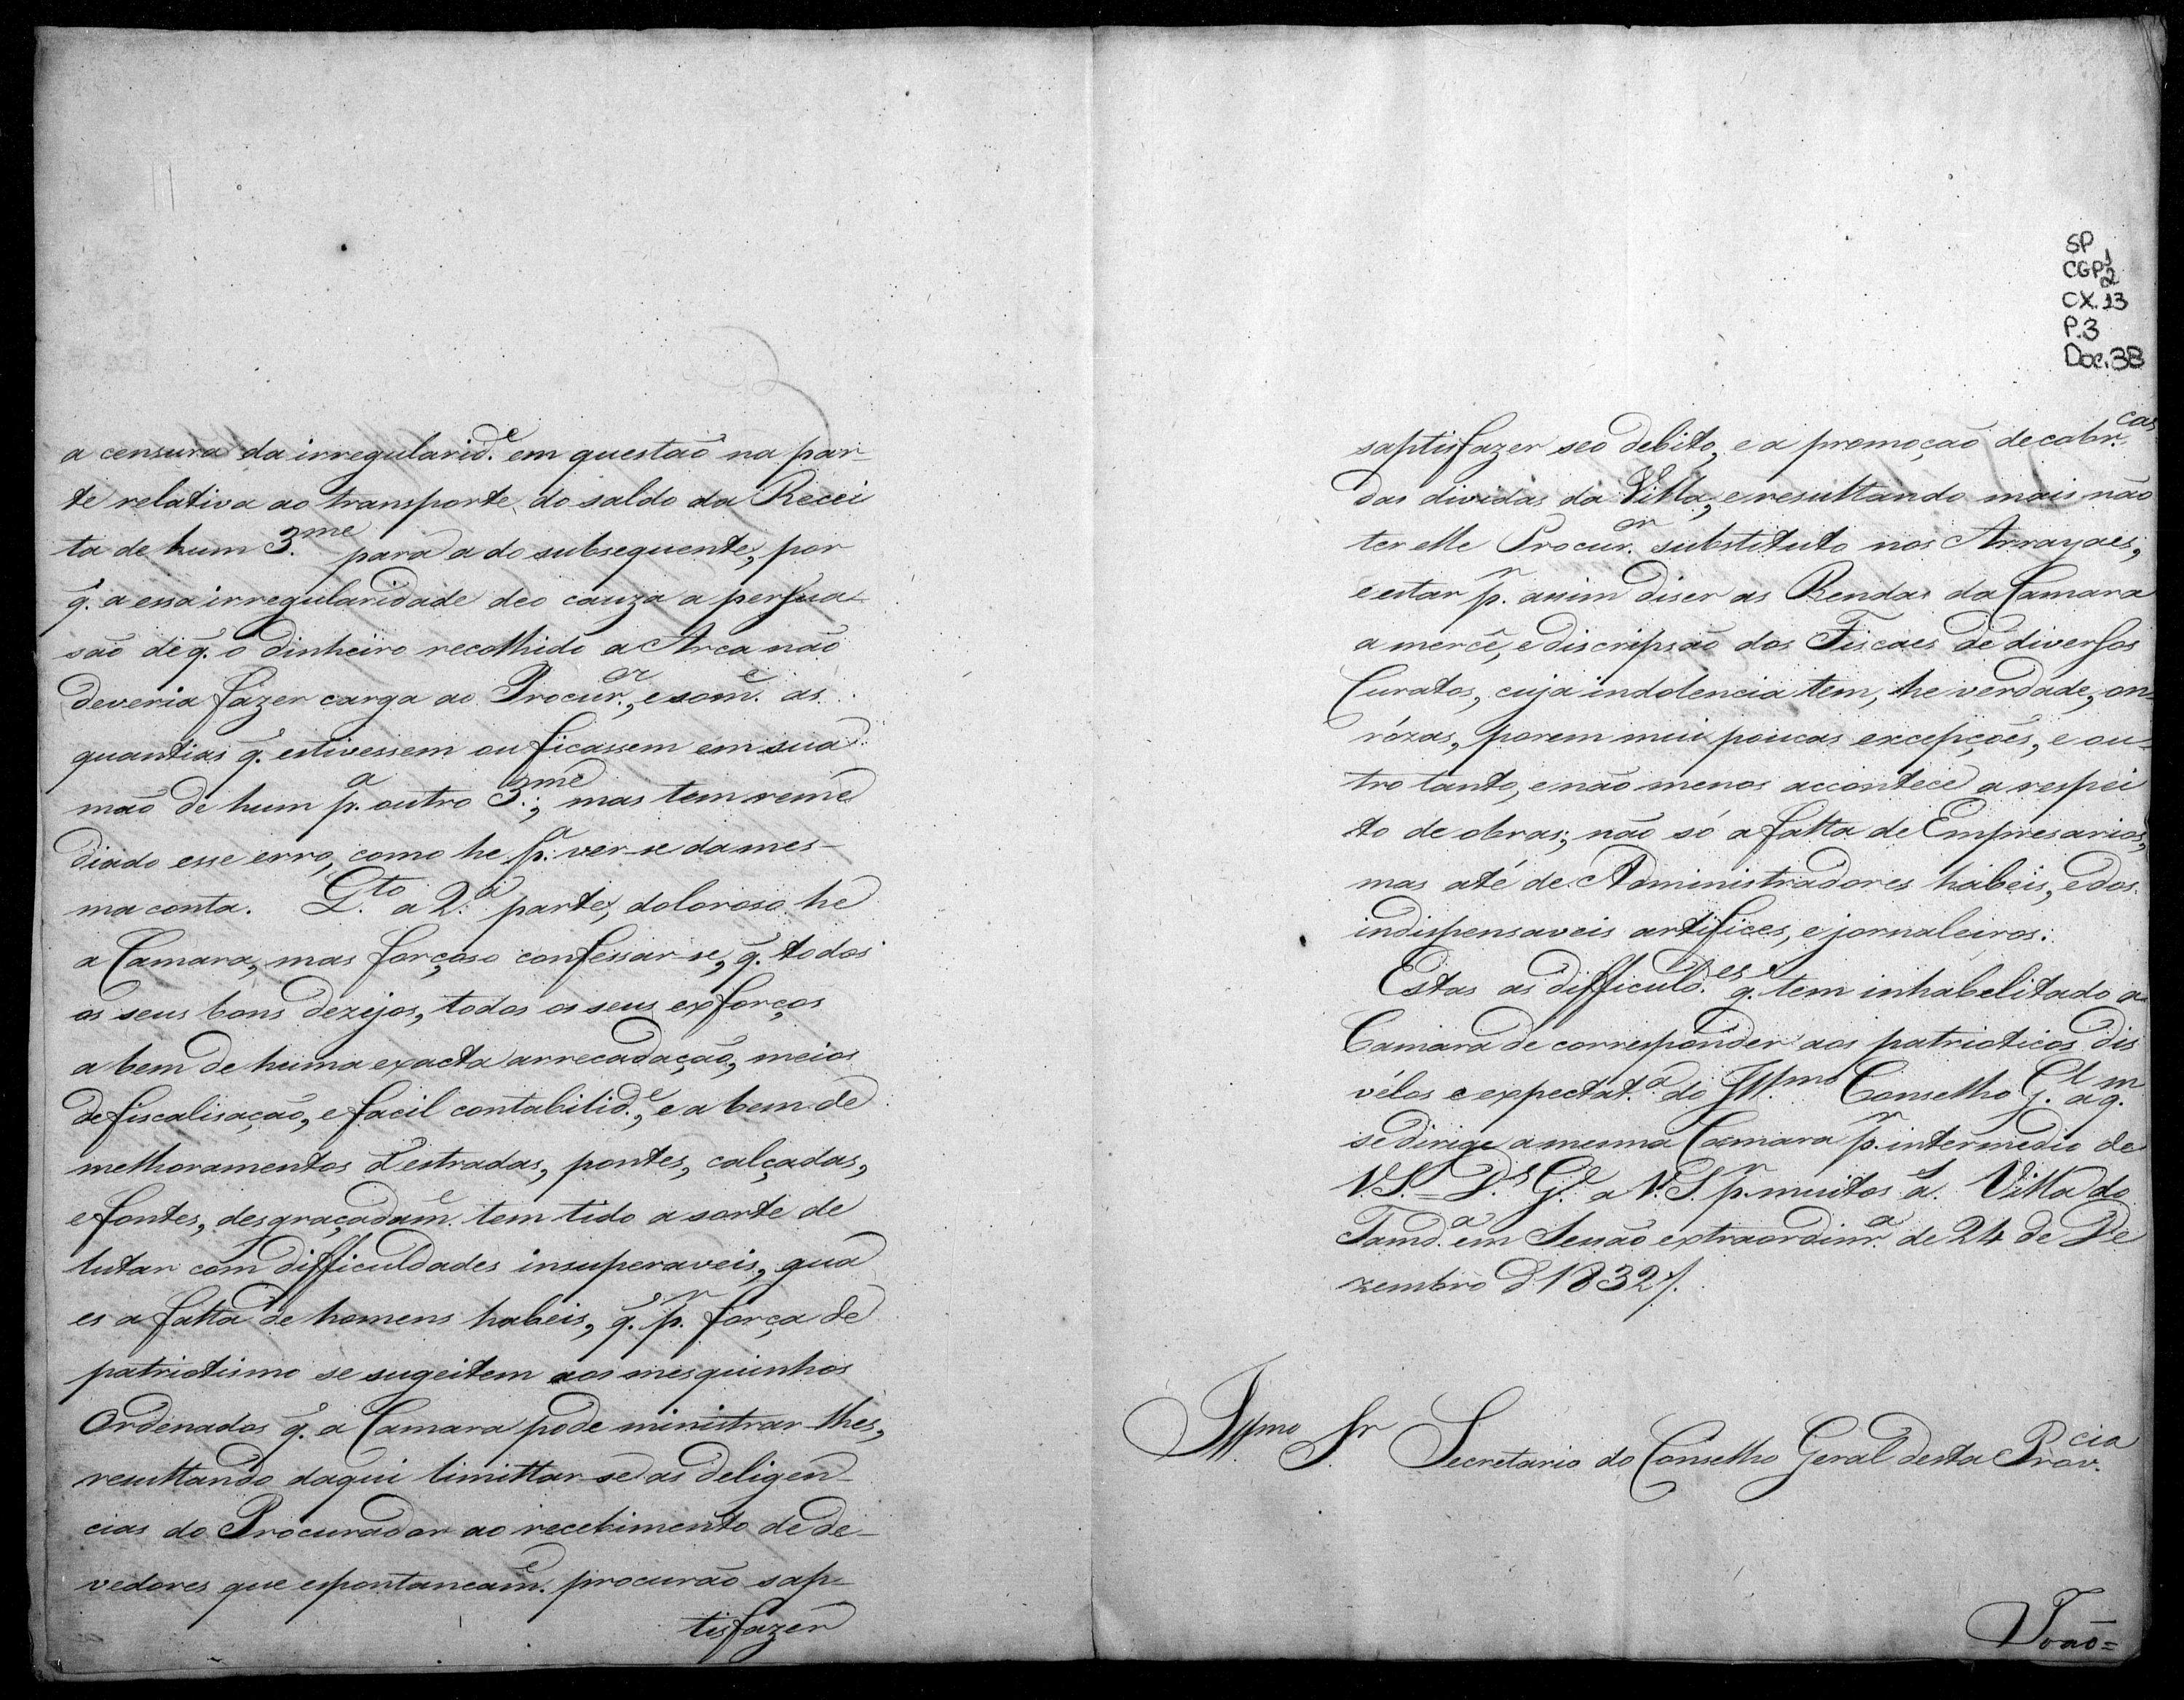 a censura da irregularid.e em questaõ na par-
te relativa ao transporte do saldo da Recei
ta de hum 3.me para a do subsequente, por
q̃. a essa irregularidade deo cauza a persua-
saõ de q̃. o dinheiro recolhido a Arca naõ
deveria fazer carga ao Procur.or, e som.e as
quantias q̃. estivessem ou ficassem em sua
maõ de hum p.a outro 3.me; mas tem reme
diado esse erro, como he p.a ver-se da mes-
ma conta. Q.to a 2.a parte, doloroso he
a Camara, mas forçoso confessar-se, q̃. todos
os seus bons dezejos, todos os seus exforços
a bem de huma exacta arrecadaçaõ, meios
de fiscalisaçaõ, e facil contabilid.e, e a bem de
melhoramentos d'estradas, pontes, calçadas,
e fontes, desgraçadam.e tem tido a sorte de
lutar com difficuldades insuperaveis, qua
es a falta de homens habeis, q̃. p.r força de
patriotismo se sugeitem aos mesquinhos
Ordenados q̃. a Camara pode ministrar-lhes,
resultando daqui limittar-se as deligen-
cias do Procurador ao recebimento de de-
vedores que espontaneam.e procuraõ sap-
tisfazer
SP
CGP1
2
CX.13
P.3
Doc.38
saptisfazer seo debito, e a promoçaõ de cobr.cas
das dividas da Villa, e resultando mais naõ
ter elle Procur.or substituto nos Arrayaes,
e estar p.r assim diser as Rendas da Camara
a mercê, e discripsaõ dos Fiscaes de diversos
Curatos, cuja indolencia tem, he verdade, on-
rózas, porem mui poucas excepções, e ou-
tro tanto, e naõ menos accontece a respei
to de obras; naõ só a falta de Empresarios,
mas até de Administradores habeis, e dos
indispensaveis artifices, e jornaleiros.
Estas as difficuld.es q̃. tem inhabelitado a
Camara de corresponder aos patrioticos dis
vélos e expectat.a do Ill.mo Conselho G.l a q.m
se dirige a mesma Camara p.r intermedio de
V.S. = D.s G.e a V.S. p.r muitos a.s Villa do
Tamd.a em Sessaõ extraordinr.a de 24 de De
zembro d'1832/.
Ill.mo Sr Secretario do Conselho Geral desta Prov.cia
Joaõ=